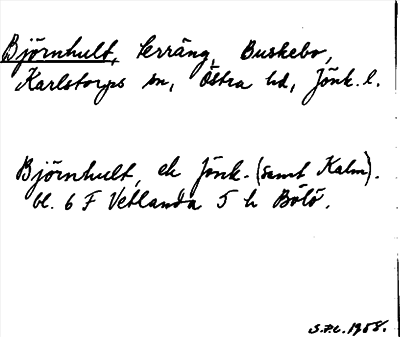 Björnhult, terräng, Buskebo,
Karlstorps sn, Östra hd, Jönk. l.
Björnhult, ek Jönk. (samt Kalm).
bl. 6 F Vetlanda 5 h Bölö.
1958.